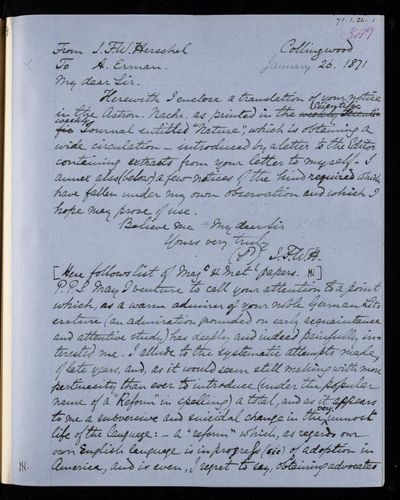 71.1.26.1
349
From J.F.W. Herschel Collingwood
To A. Erman. January 26. 1871
My dear Sir.
Herewith I enclose a translation of your notice
in the Astron. Nachr. as printed in the weekly Scientific
weekly Journal entitled "Nature", which is obtaining a
wide circulation - introduced by a letter to the Editor
containing extracts from your letter to myself - I
annex also (below) a few notices of the kind required which
have fallen under my own observation and which I
hope may prove of use.
Believe me My dear Sir
Yours very truly
J.F.W.H.
[Here follows list of Mag.c & Met.l papers.]
P.P.S. May I venture to call your attention to a point
which, as a warm admirer of your noble German Lit-
erature (an admiration grounded on early acquaintance
and attentive study) has deeply and indeed painfully, in-
terested me. I allude to the systematic attempts made,
of late years, and, as it would seem still making with more
pertinacity than ever to introduce (under the popular
name of a "Reform" in spelling) a total, and as it appears
to me a subversive and suicidal change in the very inmost
life of the language: - a "reform" which, as regards our
own English language is in progress (sic) of adoption in
America, and is even, I regret to say, obtaining advocates